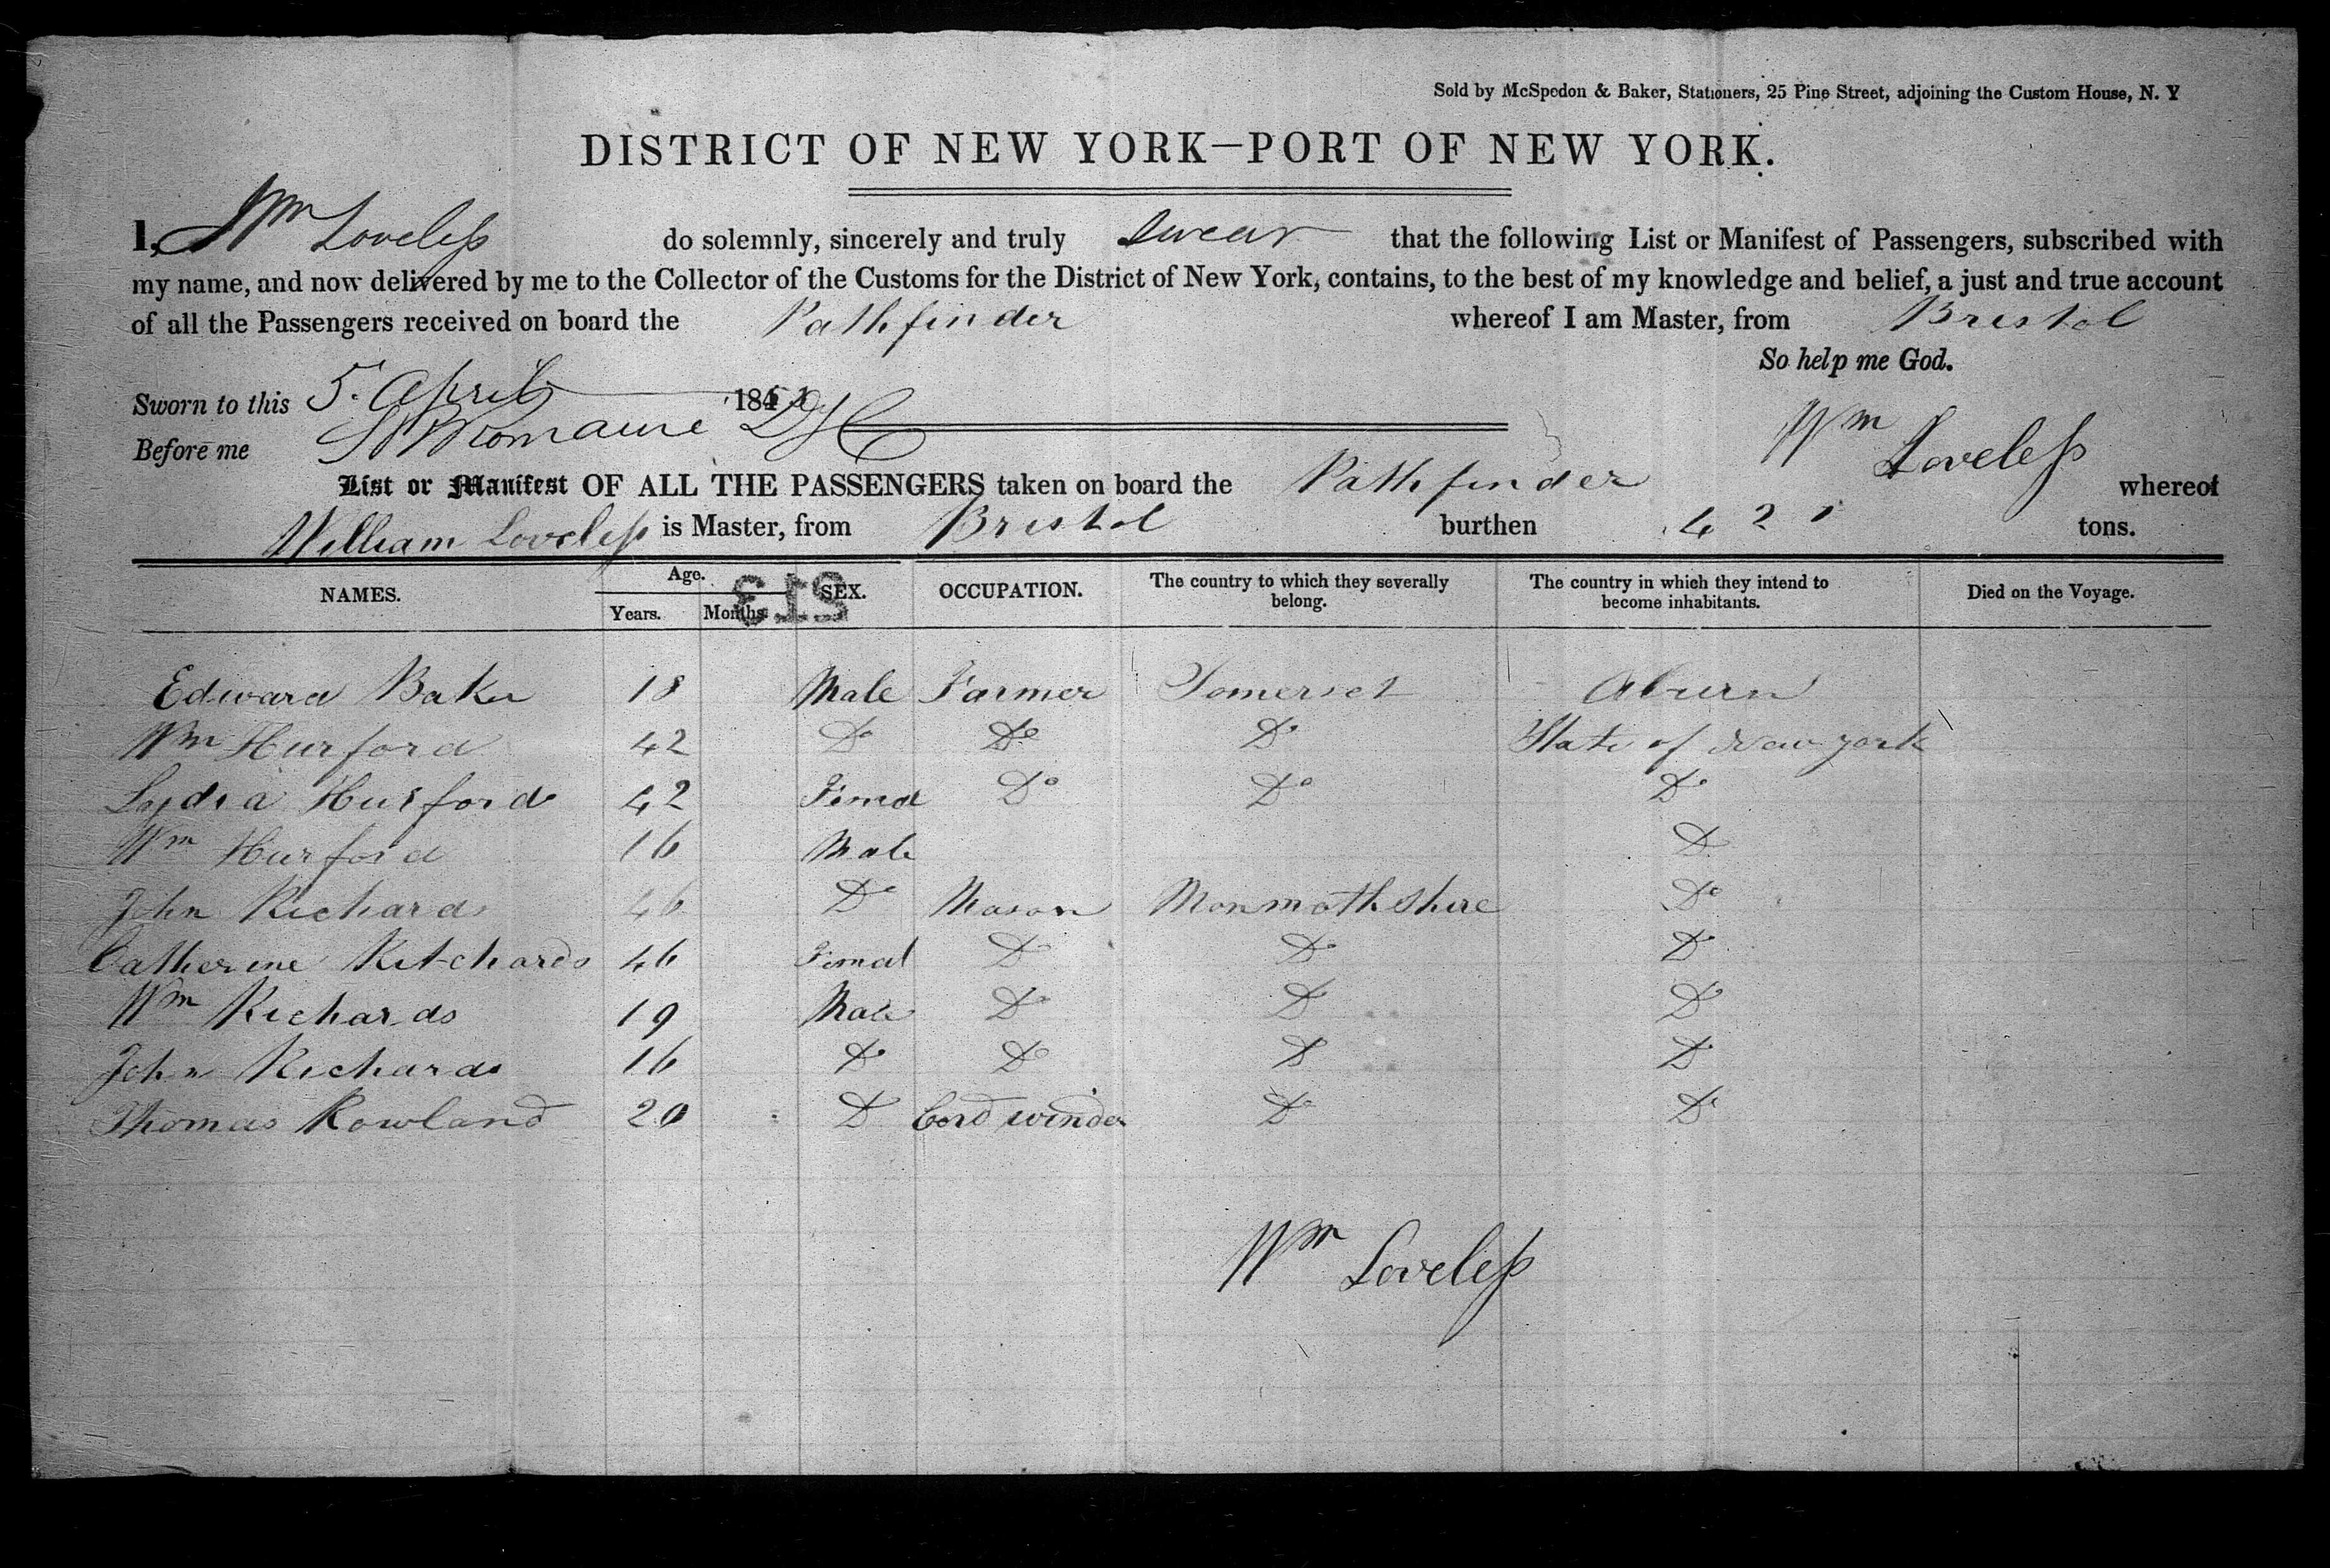 Sold by McSpedon & Baker, Stationers, 25 Pine Street, adjoining the Custom House, N. Y
DISTRICT OF NEW YORK—PORT OF NEW YORK.
I, Wm Loveless do solemnly, sincerely and truly swear that the following List or Manifest of Passengers, subscribed with
my name, and now delivered by me to the Collector of the Customs for the District of New York, contains, to the best of my knowledge and belief, a just and true account
of all the Passengers received on board the Pathfinder whereof I am Master, from Bristol
So help me God.
Sworn to this 5. April 18
Before me Romaine
Wm Loveless
List or Manifest OF ALL THE PASSENGERS taken on board the Pathfinder whereof
William Loveless is Master, from Bristol burthen 421 tons.
NAMES. Age. Years. Months. SEX. OCCUPATION. The country to which they severally belong. The country in which they intend to become inhabitants. Died on the Voyage.
513
Edward Baker 18 Male Farmer Somerset Aburn
Wm Hurford 42 Do Do Do State of New york
Lydia Hurford 42 Femal Do Do Do
Wm Hurford 16 Male D
John Richards 46 Do Mason Monmothshire Do
Catherine Ritchards 46 Femal Do Do Do
Wm Richards 19 Male Do Do Do
John Richards 16 Do Do Do Do
Thomas Rowland 20 D Cord winder Do Do
Wm Loveless